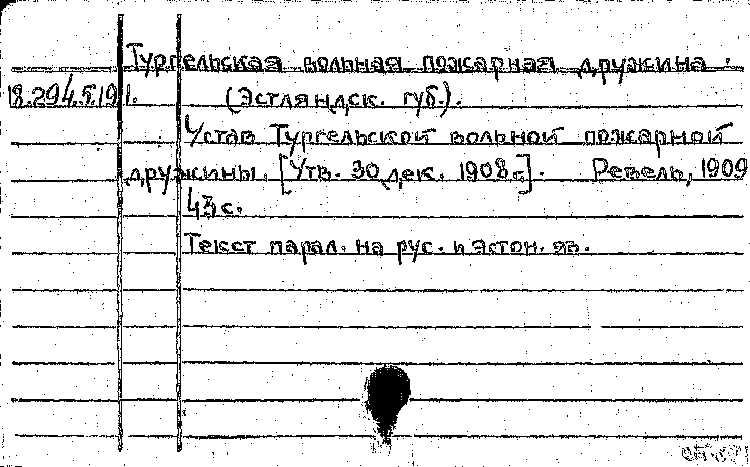 Тургельская вольная пожарная дружина.
18.294.5.191. (Эстляндск. губ.).
Устав Тургельской вольной пожарной
дружины. [Утв. 30 дек. 1908 г.]. Ревель, 1909
43 с.
Текст парал. на рус. и эстон. яз.